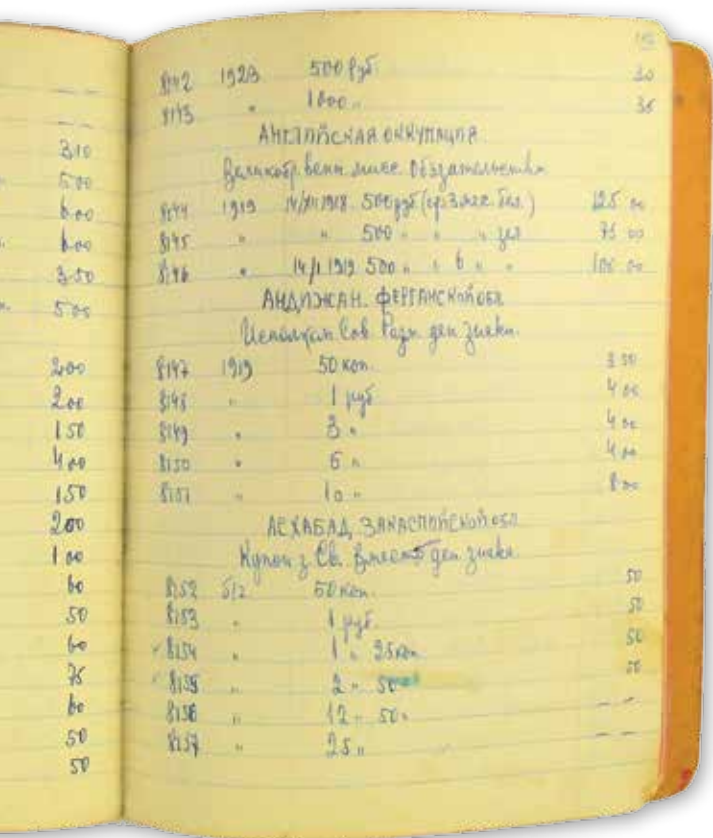 310
500
600
600
3 50
500
200
200
1 50
4 00
150
200
1 00
60
50
60
75
60
50
50
8142 1923 500 Руб. 30
8143 " 1000 " 36
АНГЛИЙСКАЯ ОККУПАЦИЯ
Великобр. венн. мисс. Обязательства
8144 1919 14/XII 1918. 500 руб 125 00
8145 " " 500 " " " 75 00
8146 " 14/I 1919 500 " " 6 " " 100 00
АНДИЖАН. ФЕРГАНСКОЙ ОБЛ
Исполком Сов. Разн. ден. знаки.
8147 1919 50 коп. 3 50
8148 " 1 руб 4 00
8149 " 3 " 4 00
8150 " 5 " 4 00
8151 " 10 " 8 00
АСХАБАД, ЗАКАСПИЙСКОЙ ОБЛ
Купон з Св. вместо ден. знака
8152 б/г 50 коп. 50
8153 " 1 руб. 50
8154 " 1 " 25 коп. 50
8155 " 2 " 50 50
8156 " 12 " 50 " — —
8157 " 25 " — —